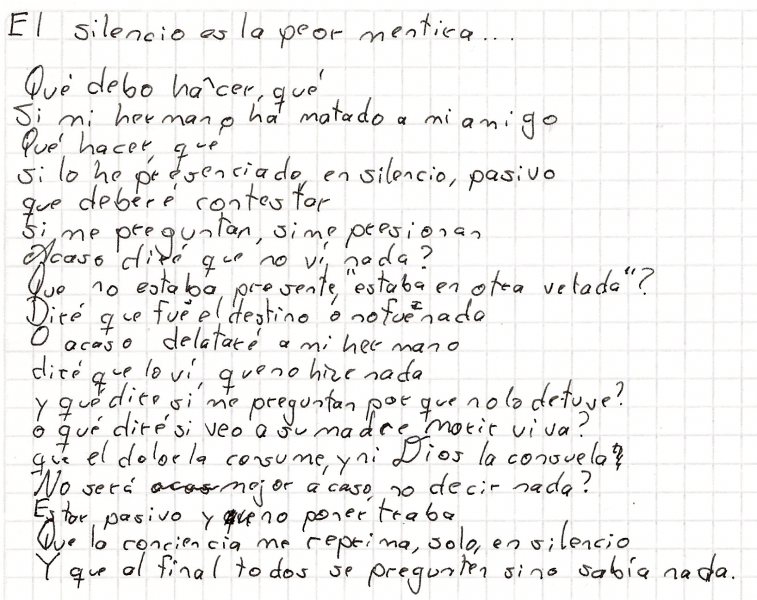 El silencio es la peor mentira...
Qué debo hacer, qué
Si mi hermano ha matado a mi amigo
Qué hacer, que
si lo he presenciado, en silencio, pasivo
que deberé contestar
si me preguntan, si me presionan
Acaso diré que no ví, nada?
Que no estaba presente, "estaba en otra velada"?
Diré que fué el destino o no fue nada
O acaso delataré a mi hermano
diré que lo ví, que no hize nada
y qué dire si me preguntan por que no lo detuve?
o qué diré si veo a su madre morir viva?
que el dolor la consume, y ni Dios la consuela?
No será mejor acaso, no decir nada?
Estar pasivo y no poner traba
Que la conciencia me reprima, solo, en silencio
Y que al final todos se pregunten si no sabía nada.